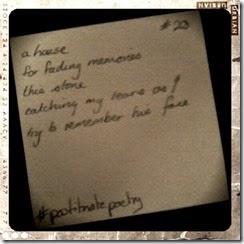 #23
a house
for fading memories
this stone
catching my tears as I
try to remember his face
#postitnotepoetry